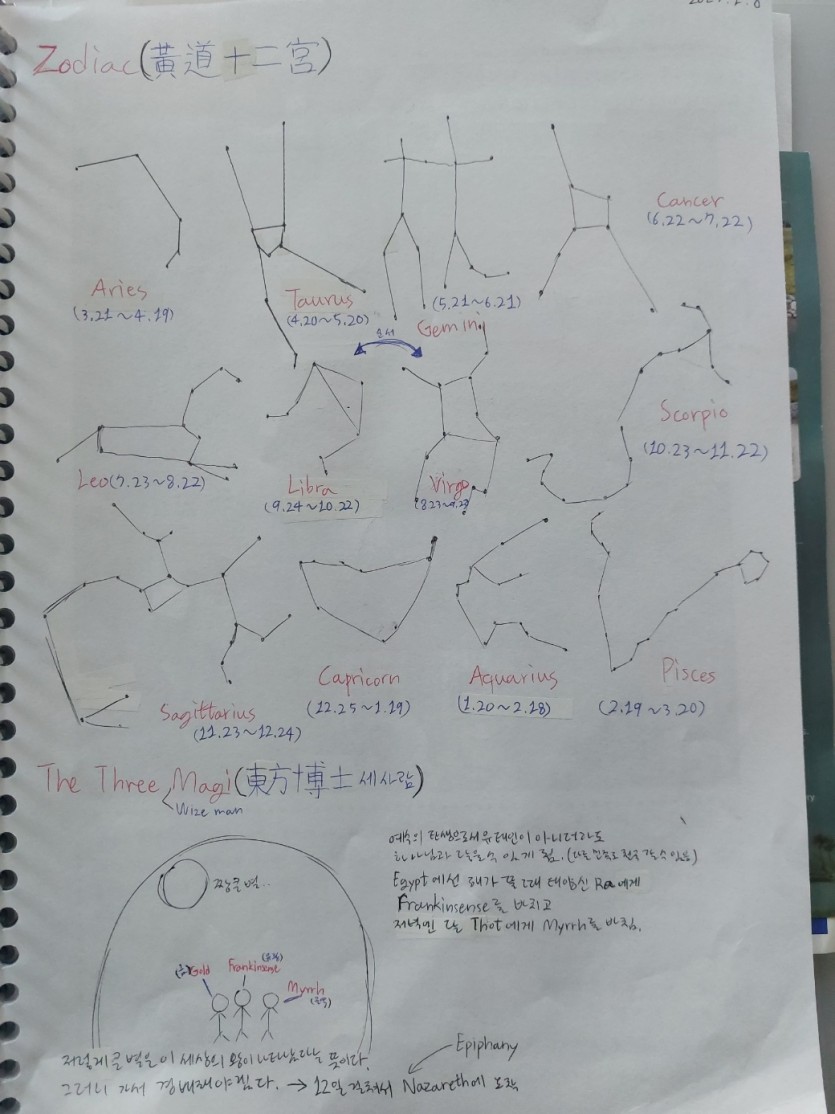 Zodiac(黃道十二宮)
Cancer
(6.22~7.22)
Aries
(3.21~4.19)
Taurus
(4.20~5.20)
(5.21~6.21)
Gemini
순서
Scorpio
(10.23~11.22)
Leo(7.23~8.22)
Libra
(9.24~10.22)
Virgo
(8.23~9.23)
Sagittarius
(11.23~12.24)
Capricorn
(12.25~1.19)
Aquarius
(1.20~2.18)
Pisces
(2.19~3.20)
The Three Magi(東方博士 세사람)
Wize man
예수의 탄생으로서 유태인이 아니더라도
하나님과 닿을 수 있게 됨.
Egypt에선 해가 뜰 때 태양신 Ra에게
Frankinsense를 바치고
저녁엔 달 Thot에게 Myrrh를 바침.
짱큰별..
Gold
Frankinsense
Myrrh
저렇게 큰 별은 이 세상의 왕이 나타남다는 뜻이다.
그러니 가서 경배해야겠다. → 12일 걸려서 Nazareth에 도착
Epiphany